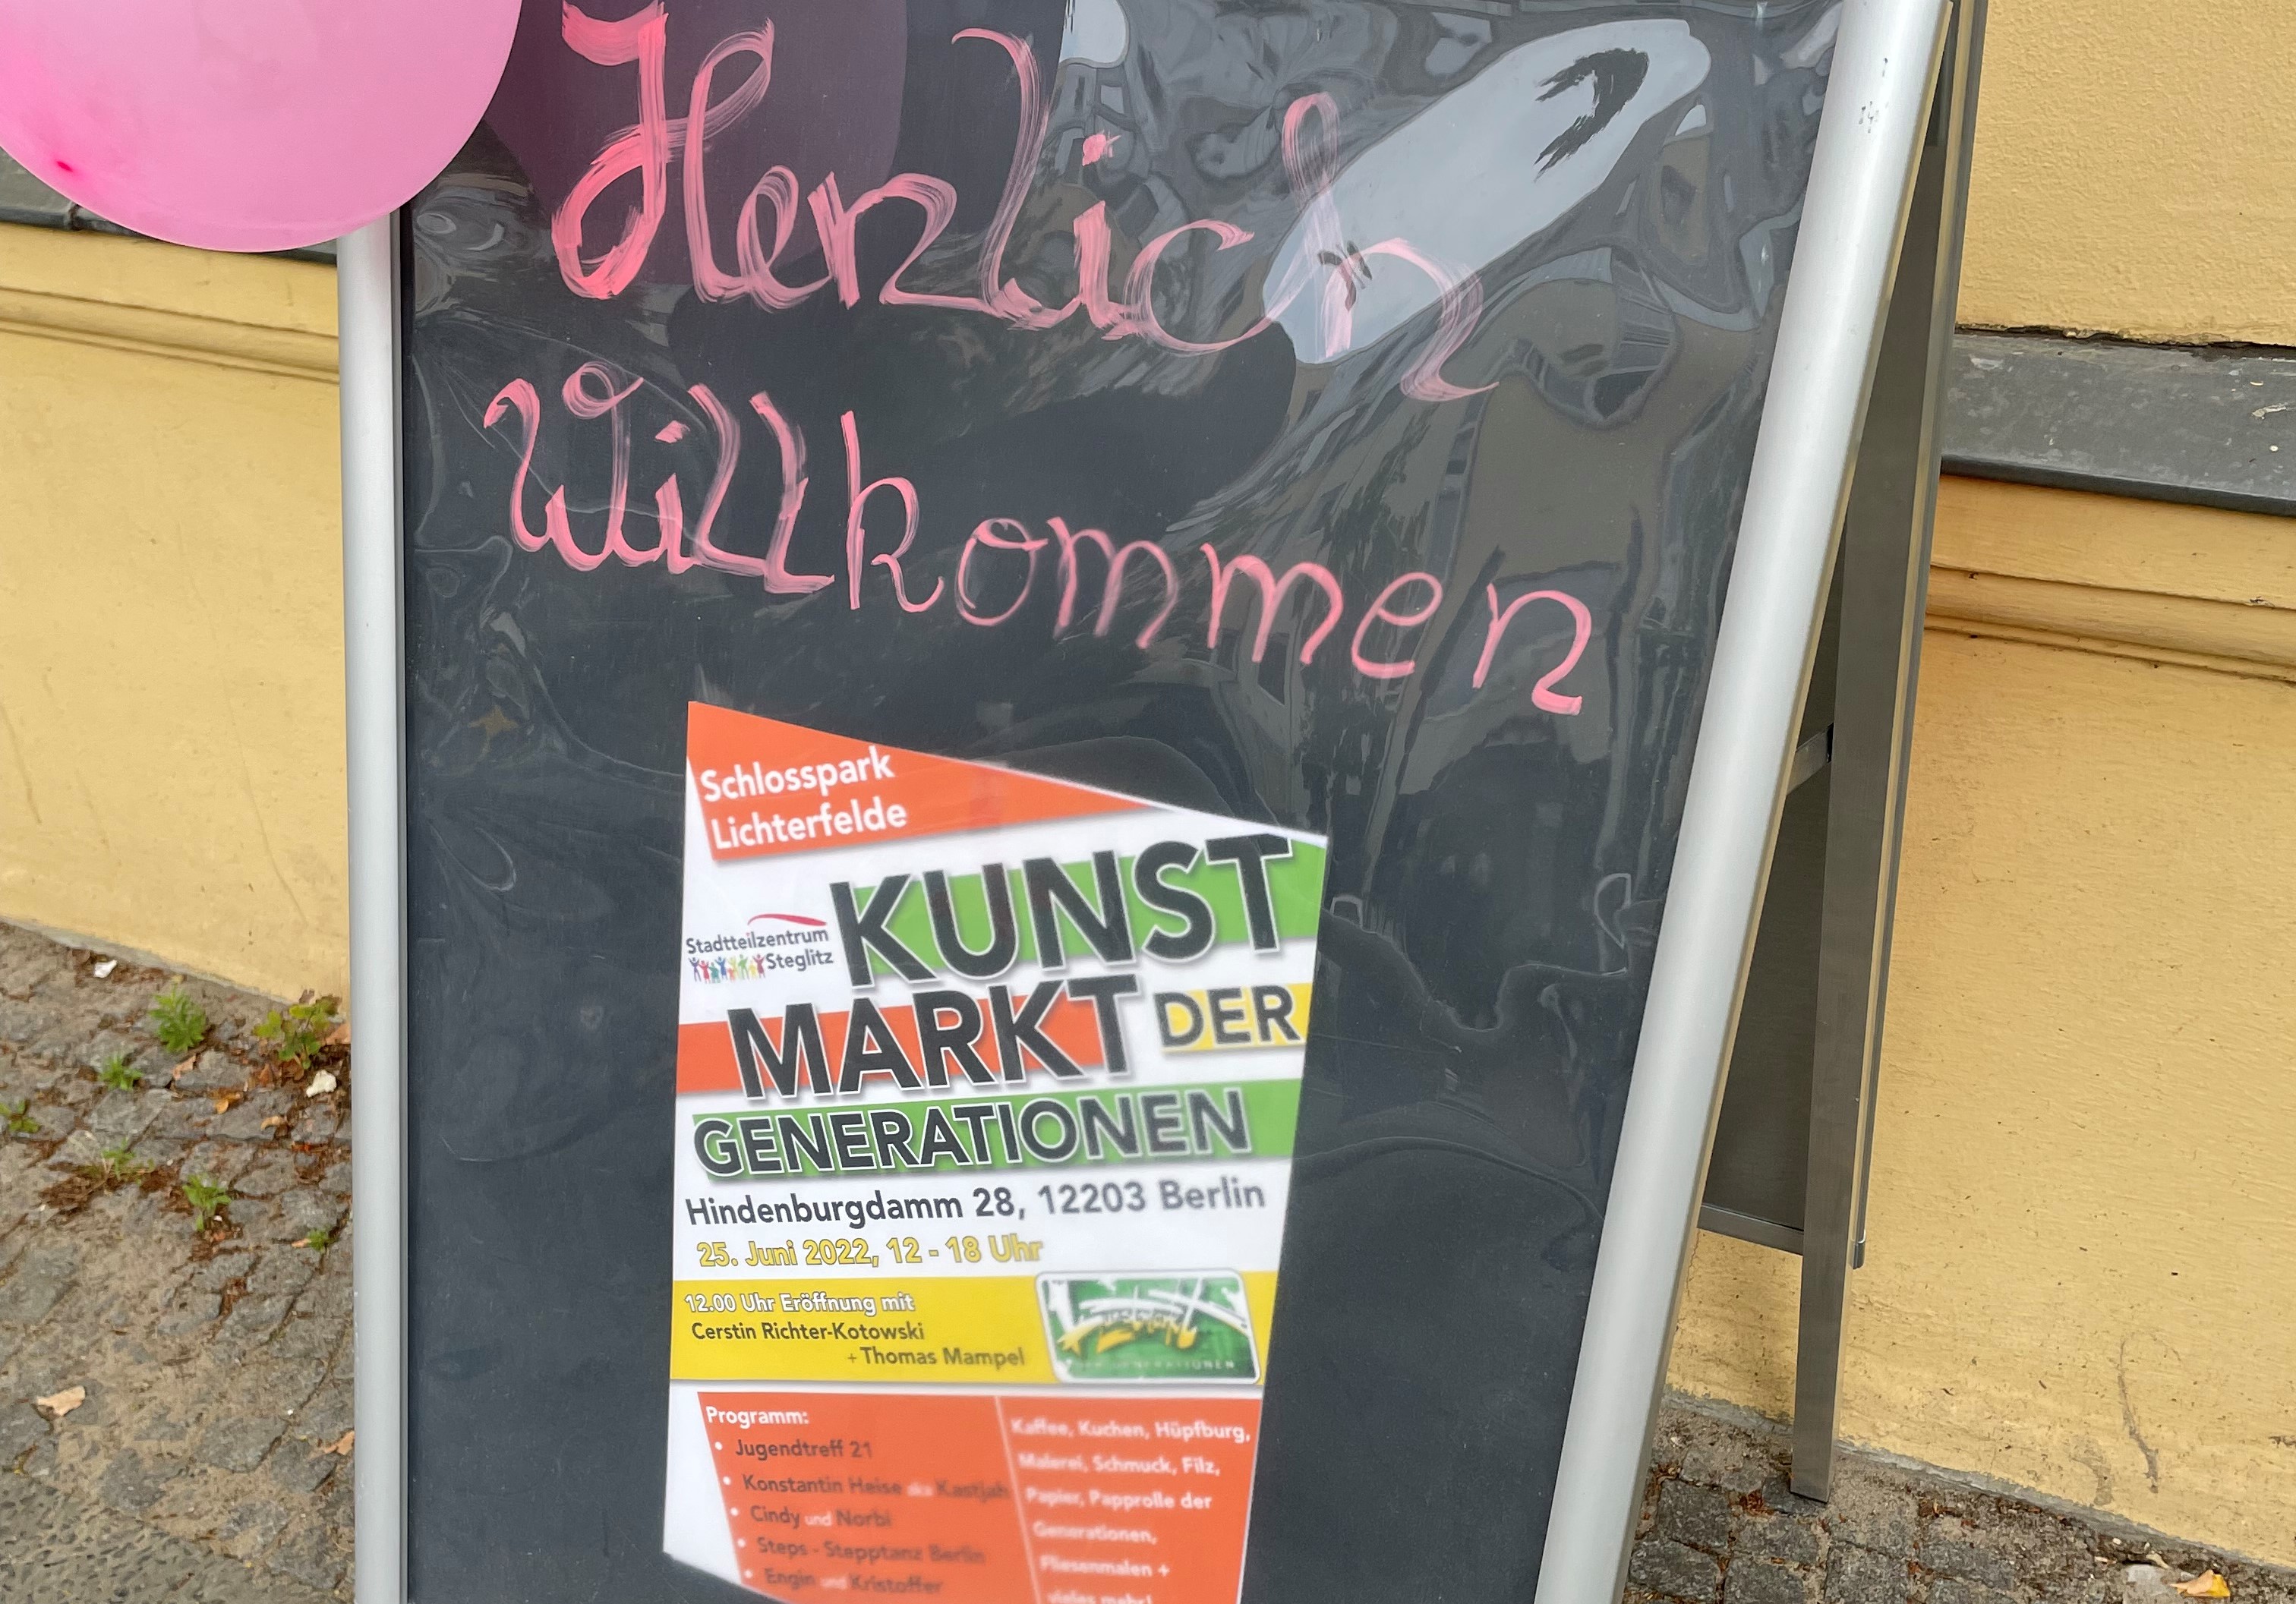 Herzlich
Willkommen
Schlosspark
Lichterfelde
KUNST
Stadtteilzentrum
Steglitz
MARKT DER
GENERATIONEN
Hindenburgdamm 28, 12203 Berlin
25. Juni 2022, 12 - 18 Uhr
12.00 Uhr Eröffnung mit
Cerstin Richter-Kotowski
+ Thomas Mampel
Kunstmarkt
DER GENERATIONEN
Programm:
• Jugendtreff 21
• Konstantin Heise aka Kastjah
• Cindy und Norbi
• Steps - Stepptanz Berlin
• Engin und Kristoffer
Kaffee, Kuchen, Hüpfburg,
Malerei, Schmuck, Filz,
Papier, Papprolle der
Generationen,
Fliesenmalen +
vieles mehr!